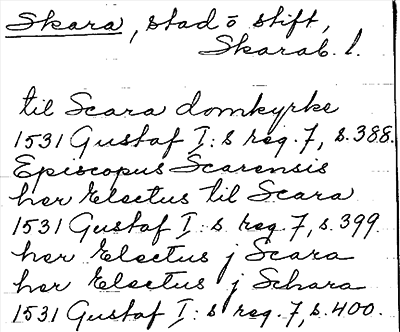 Skara, stad o stift,
Skarab. l.
til Scara domkyrke
1531 Gustaf I:s reg. 7, s. 388.
Episcopus Scarensis
her Electus til Scara
1531 Gustaf I:s reg. 7, s. 399
her Electus j Scara
her Electus j Schara
1531 Gustaf I:s reg. 7, s. 400.